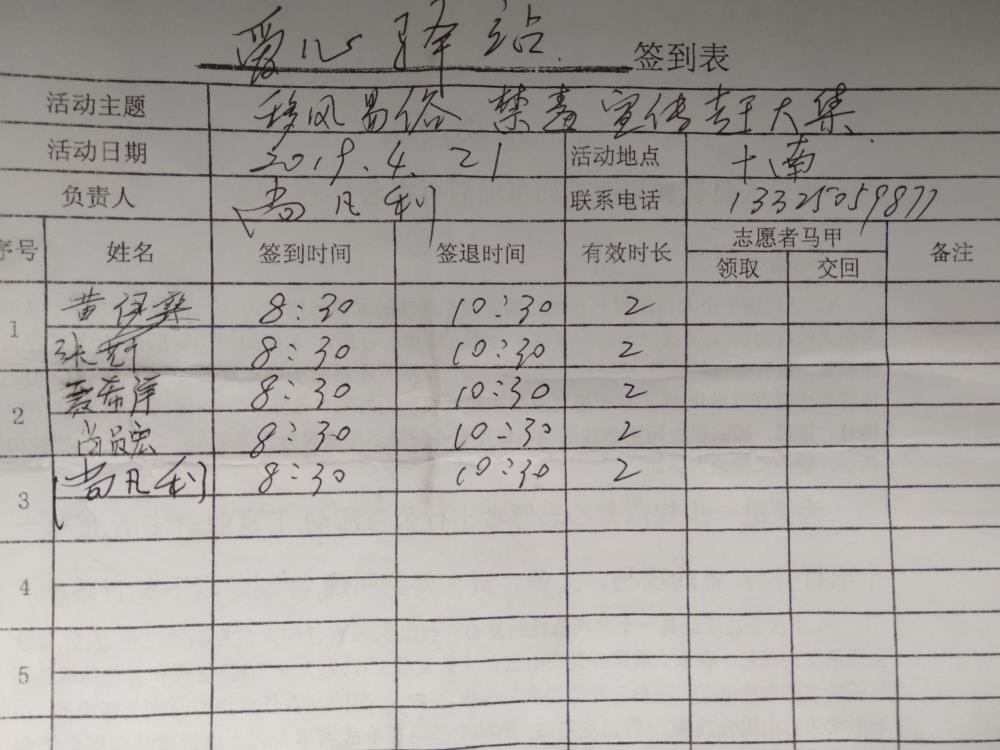 爱心驿站 签到表
活动主题 移风易俗 禁毒宣传赶大集
活动日期 2019.4.21 活动地点 十南
负责人 尚凡利 联系电话 13325059877
序号 姓名 签到时间 签退时间 有效时长 志愿者马甲 备注
领取 交回
1 黄 8:30 10:30 2
张 8:30 10:30 2
2 聂希洋 8:30 10:30 2
尚员宏 8:30 10:30 2
3 尚凡利 8:30 10:30 2
4
5